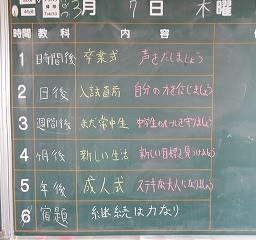 3月 7日 木曜
時間 教科 内容
1 時間後 卒業式 声をだしましょう
2 日後 入試直前 自分の力を信じましょう
3 週間後 まだ常中生 中学生のルールを守りましょう
4 ヶ月後 新しい生活 新しい目標を見つけましょう
5 年後 成人式 ステキな大人になりましょう
6 宿題 継続は力なり